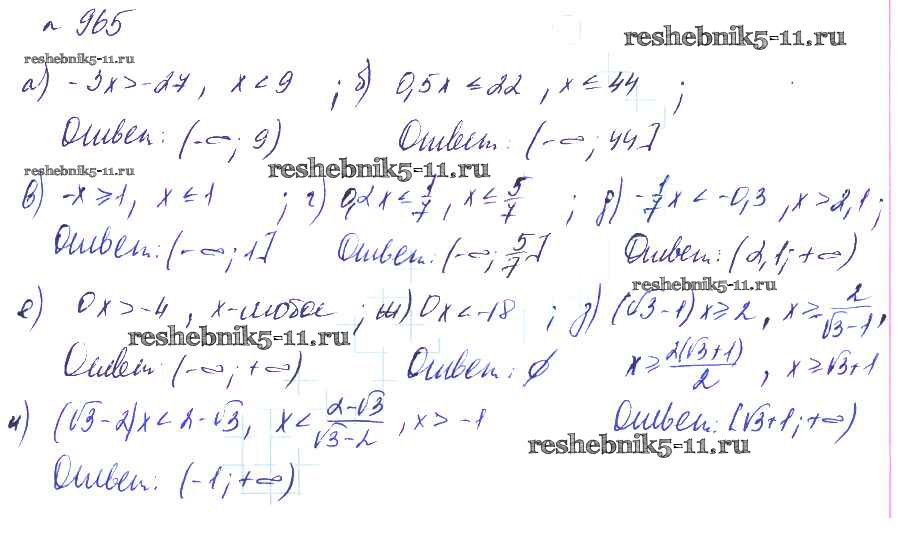 № 965
reshebnik5-11.ru
reshebnik5-11.ru
а) -3x>-27, x<9 ; б) 0,5x≤22, x≤44 ;
Ответ: (-∞; 9) Ответ: (-∞; 44]
reshebnik5-11.ru reshebnik5-11.ru
в) -x≥1, x≤1 ; г) 0,2x≤1/7, x≤5/7 ; д) -1/7x<-0,3, x>2,1;
Ответ: (-∞; 1] Ответ: (-∞; 5/7] Ответ: (2,1; +∞)
reshebnik5-11.ru
е) 0x>-4, x-любое ; ж) 0x<-18 ; з) (√3-1)x≥2, x≥2/√3-1,
reshebnik5-11.ru
Ответ: (-∞; +∞) Ответ: ∅ x≥2(√3+1)/2, x≥√3+1
и) (√3-2)x<2-√3, x<2-√3/√3-2, x>-1 Ответ: [√3+1; +∞)
reshebnik5-11.ru
Ответ: (-1; +∞)